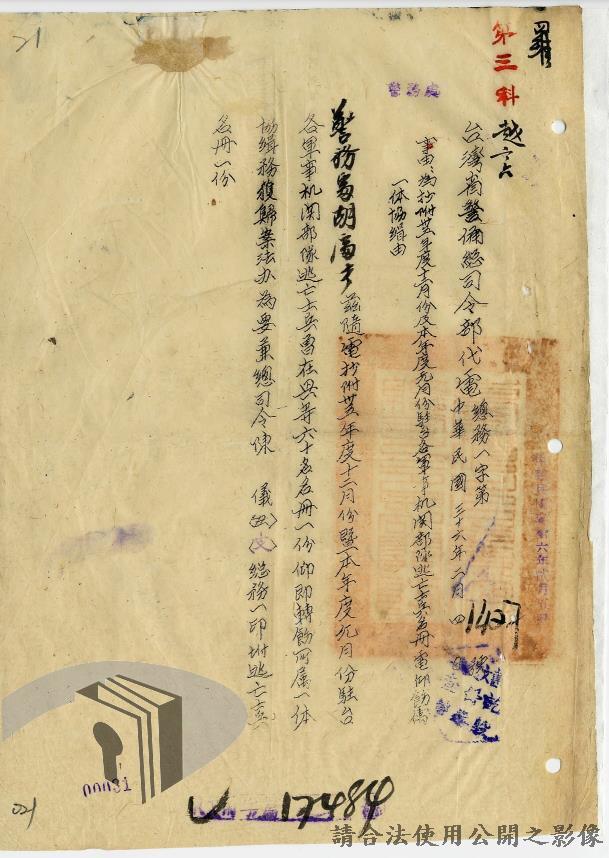 羅
第三科
警務處
台灣省警備總司令部代電 總務一字第
1407
中華民國三十六年二月四日
事由:為抄附卅五年度十二月份及本年度元月份駐台各軍事机関部隊逃亡士兵名冊電仰飭屬
一体協緝由
警務處胡處長 茲隨電抄附卅五年度十二月份暨本年度元月份駐台
各軍事机関部隊逃亡士兵曹在興等六十名名冊一份仰即轉飭所属一体
協緝務獲歸案法办為要兼總司令陳 儀 總務一印坿逃亡士兵
名冊一份
00031
17484
21
021
請合法使用公開之影像